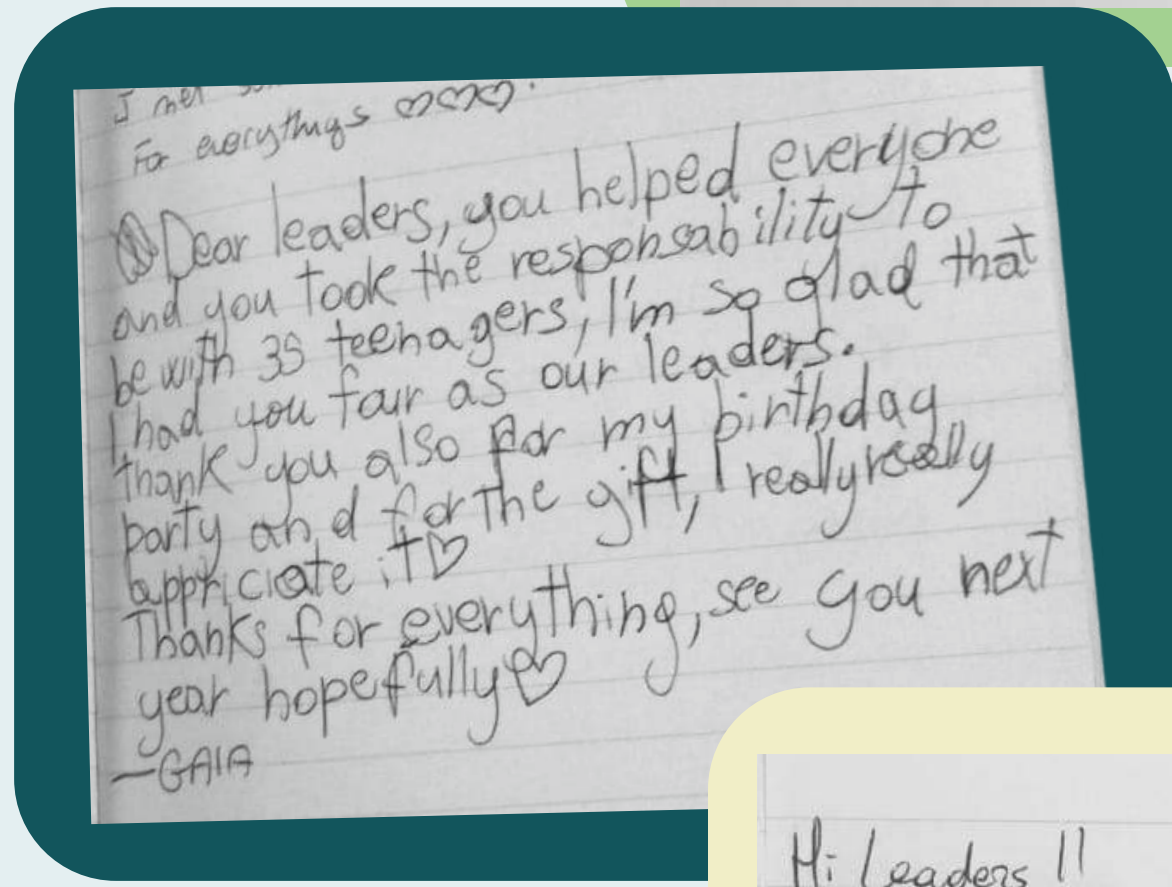 I met
For everythings ♡♡♡.
Dear leaders, you helped everyone
and you took the responsability to
be with 35 teenagers, I'm so glad that
I had you four as our leaders.
thank you also for my birthday
party and for the gift, I really really
appriciate it ♡
Thanks for everything, see you next
year hopefully ♡
—GAIA
Hi Leaders !!